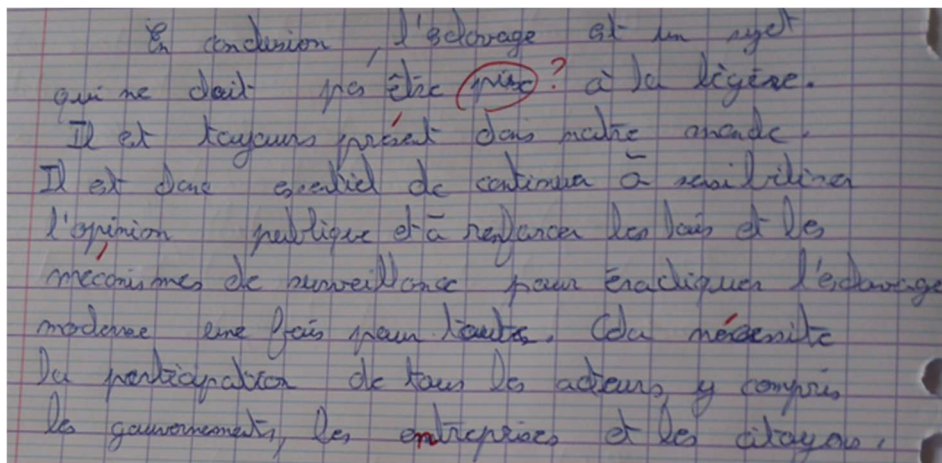 En conclusion, l'esclavage est un sujet
qui ne doit pas être prise ? à la légère.
Il et toujours présent dans notre monde.
Il est donc essentiel de continuer à sensibiliser
l'opinion publique et à renforcer les lois et les
mécanismes de surveillance pour éradiquer l'esclavage
moderne une fois pour toutes. Cela nécessite
la participation de tous les acteurs, y compris
les gouvernements, les entreprises et les citoyens.